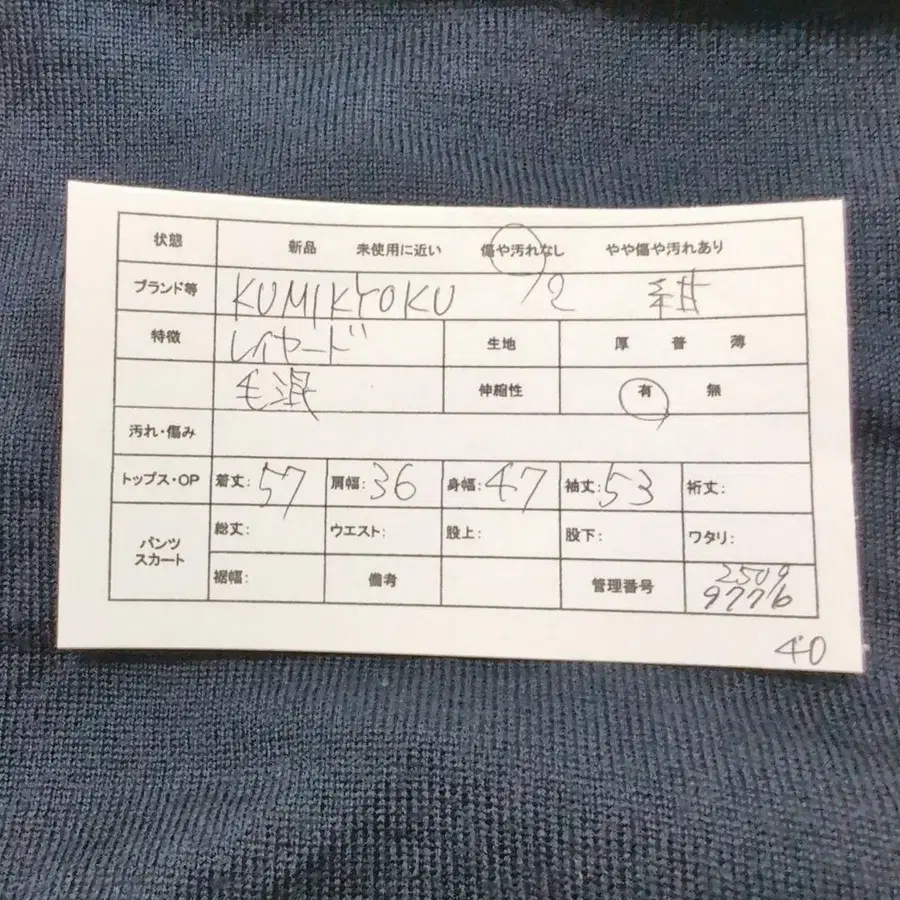 状態 新品 未使用に近い 傷や汚れなし やや傷や汚れあり
ブランド等 KUMIKYOKU 2 紺
特徴 レイヤード 生地 厚 普 薄
毛混 伸縮性 有 無
汚れ・傷み
トップス・OP 着丈:57 肩幅:36 身幅:47 袖丈:53 裄丈:
パンツ スカート 総丈: ウエスト: 股上: 股下: ワタリ:
裾幅: 備考 管理番号 2509
9776
40